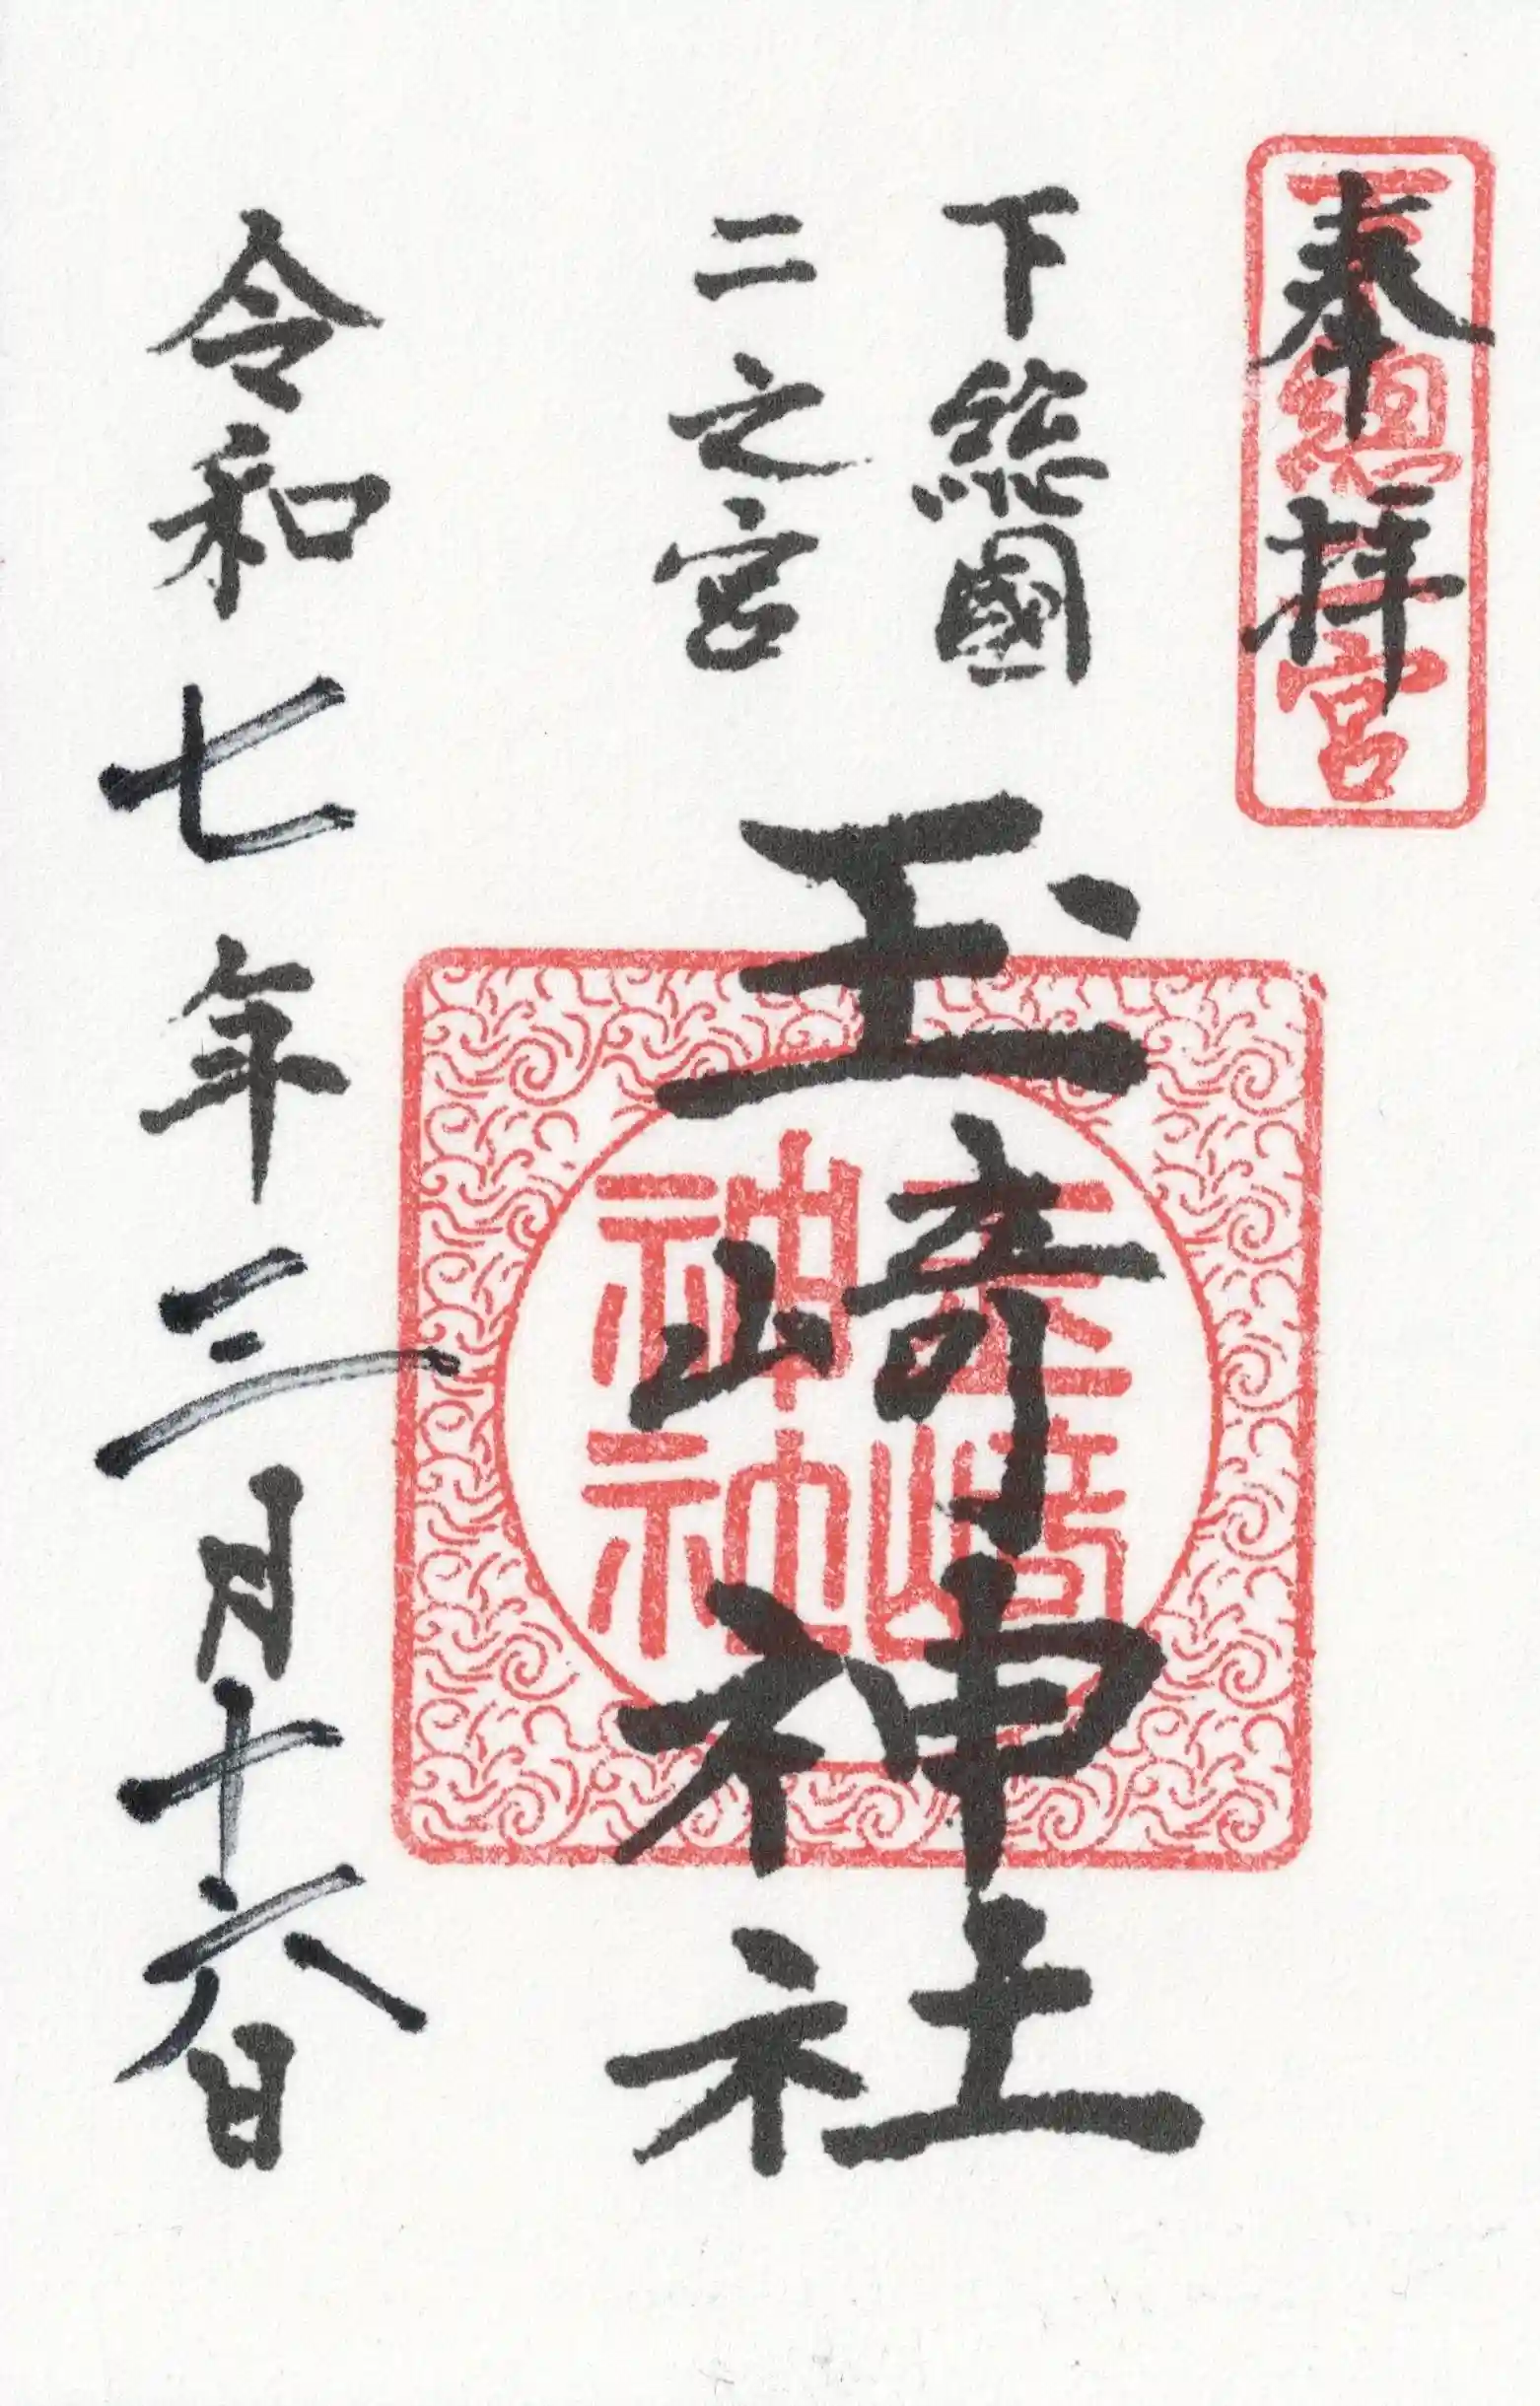 奉拝
下総二宮
下総國
二之宮
玉﨑神社
玉崎神社
令和七年三月十六日